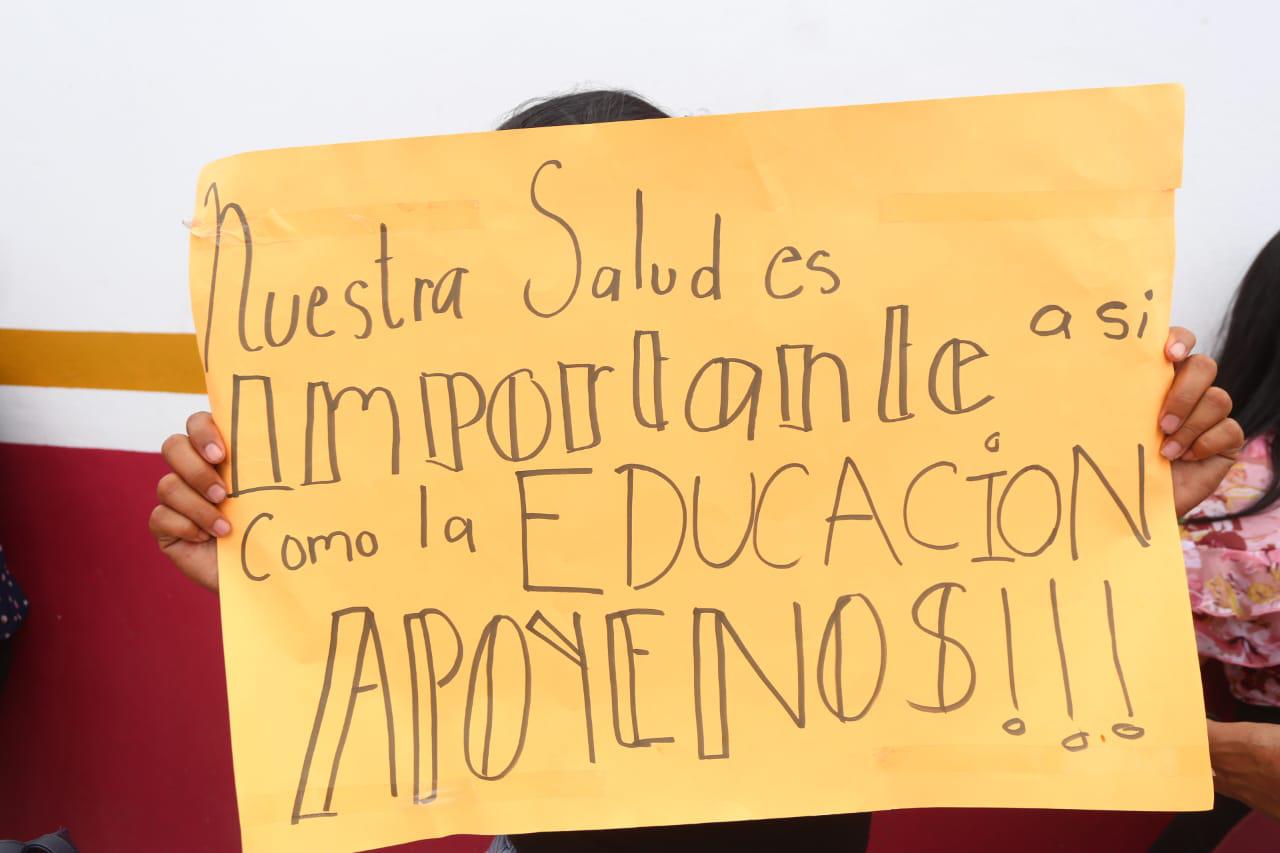 Nuestra Salud es
Importante asi
Como la EDUCACION
APOYENOS!!!